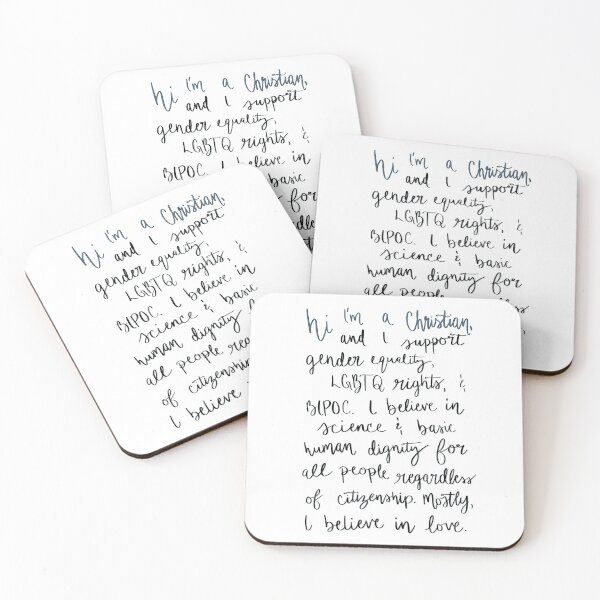 hi I'm a Christian,
and I support
gender equality,
LGBTQ rights, &
BIPOC. I believe in
basic
for
hi I'm a Christian,
and I support
gender equality,
LGBTQ rights, &
BIPOC. I believe in
science & basic
human dignity for
all people regardless
hi I'm a Christian,
and I support
gender equality,
LGBTQ rights, &
BIPOC. I believe in
science & basic
human dignity
all people
of citizenship.
I believe
hi I'm a Christian,
and I support
gender equality,
LGBTQ rights, &
BIPOC. I believe in
science & basic
human dignity for
all people regardless
of citizenship. Mostly,
I believe in love.